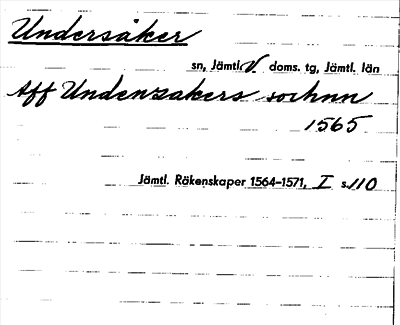 Undersåker
sn, Jämtl. V doms. tg, Jämtl. län
Aff Undenszakers sochnn
1565
Jämtl. Räkenskaper 1564–1571, I s. 110